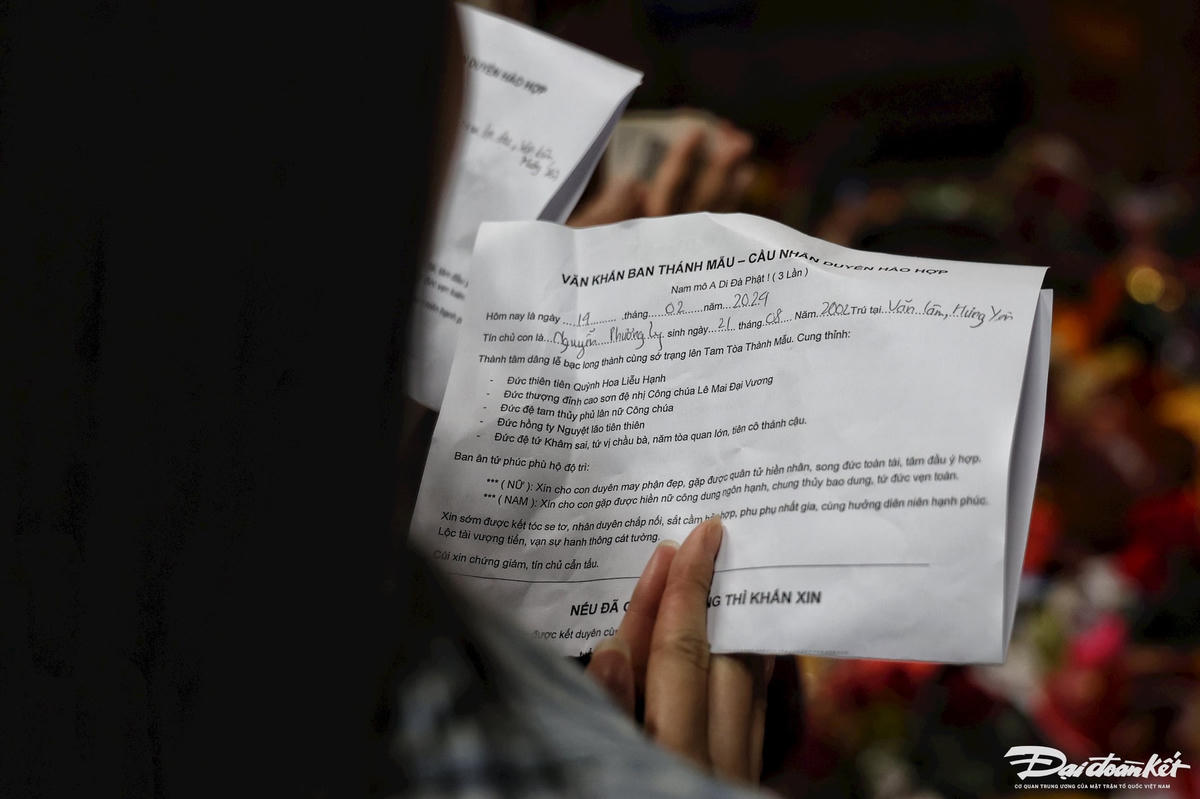 DUYÊN HẢO HỢP
VĂN KHẤN BAN THÁNH MẪU – CẦU NHÂN DUYÊN HẢO HỢP
Nam mô A Di Đà Phật ! ( 3 Lần )
Hôm nay là ngày....19..........tháng......02......năm..2024
Tín chủ con là...Nguyễn Phương Ly sinh ngày..21 tháng..08... Năm.2002 Trú tại.Văn Lâm, Hưng Yên
Thành tâm dâng lễ bạc long thành cùng sở trạng lên Tam Tòa Thánh Mẫu. Cung thỉnh:
- Đức thiên tiên Quỳnh Hoa Liễu Hạnh
- Đức thượng đỉnh cao sơn đệ nhị Công chúa Lê Mai Đại Vương
- Đức đệ tam thủy phủ lân nữ Công chúa
- Đức hồng ty Nguyệt lão tiên thiên
- Đức đệ tứ Khâm sai, tứ vị chầu bà, năm tòa quan lớn, tiên cô thánh cậu.
Ban ân tứ phúc phù hộ độ trì:
*** ( NỮ ): Xin cho con duyên may phận đẹp, gặp được quân tử hiền nhân, song đức toàn tài, tâm đầu ý hợp.
*** ( NAM ): Xin cho con gặp được hiền nữ công dung ngôn hạnh, chung thủy bao dung, tứ đức vẹn toàn.
Xin sớm được kết tóc se tơ, nhân duyên chắp nối, sắt cầm hợp, phu phụ nhất gia, cùng hưởng diên niên hạnh phúc.
Lộc tài vượng tiến, vạn sự hanh thông cát tường.
Cúi xin chứng giám, tín chủ cẩn tấu.
NẾU ĐÃ THÌ KHẤN XIN
được kết duyên
Đại đoàn kết
CƠ QUAN TRUNG ƯƠNG CỦA MẶT TRẬN TỔ QUỐC VIỆT NAM